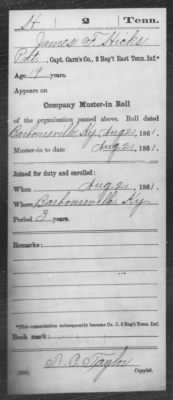 H 2 Tenn.
James F. Hicks
Pvt., Capt. Carn's Co., 2 Reg't East Tenn. Inf.*
Age 19 years.
Appears on
Company Muster-in Roll
of the organization named above. Roll dated
Barboursville Ky, Aug 21, 1861.
Muster-in to date Aug 21, 1861.
Joined for duty and enrolled:
When Aug 21, 1861.
Where Barboursville Ky.
Period 3 years.
Remarks:
*This organization subsequently became Co. C, 2 Reg't Tenn. Inf.
Book mark:
Taylor
Copyist.